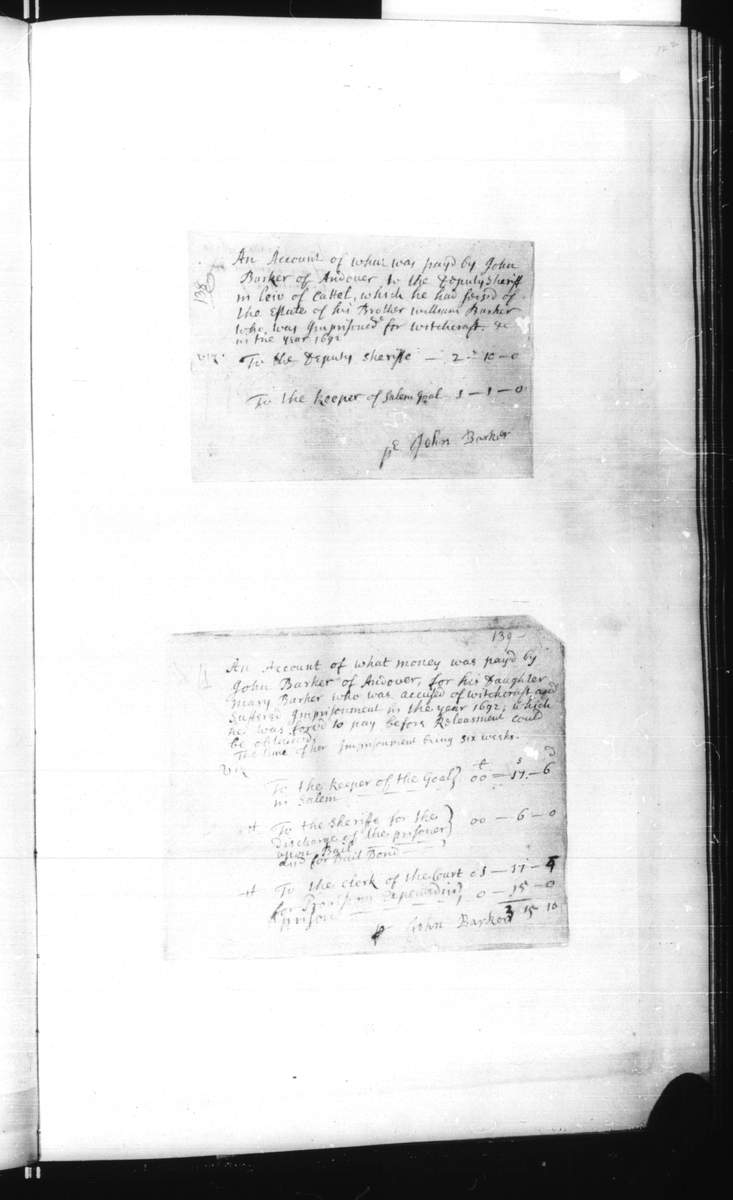 122
138
An Account of what was pay'd by John
Barker of Andover to the Deputy Sheriff
in leiv of Cattel, which he had seis'd of
the Estate of his Brother William Barker
who was Imprisoned for witchcraft. &c
in the year 1692
viz.
To the Deputy Sheriffe — 2 - 10 - 0
To the keeper of Salem Goal - 5 - 1 - 0
pr John Barker
139
An Account of what money was pay'd by
John Barker of Andover, for his Daughter
Mary Barker who was accused of witchcraft and
Sufferd Imprisonment in the year 1692; which
he was forc'd to pay before Releasment could
be obtained.
The time of her Imprisonment being six weeks.
Viz
To the keeper of the Goal} 00 - 17 - 6
in Salem
To the Sheriffe for the
discharge of the prisoner} 00 - 6 - 0
upon Bail
and for Bail Bond
To the Clerk of the Court 01 - 17 - 4
for
prison 0 - 15 - 0
3 15 10
pr John Barker